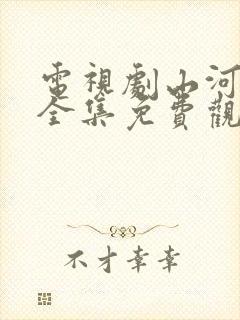 電視劇山河
全集免費觀
不才幸幸